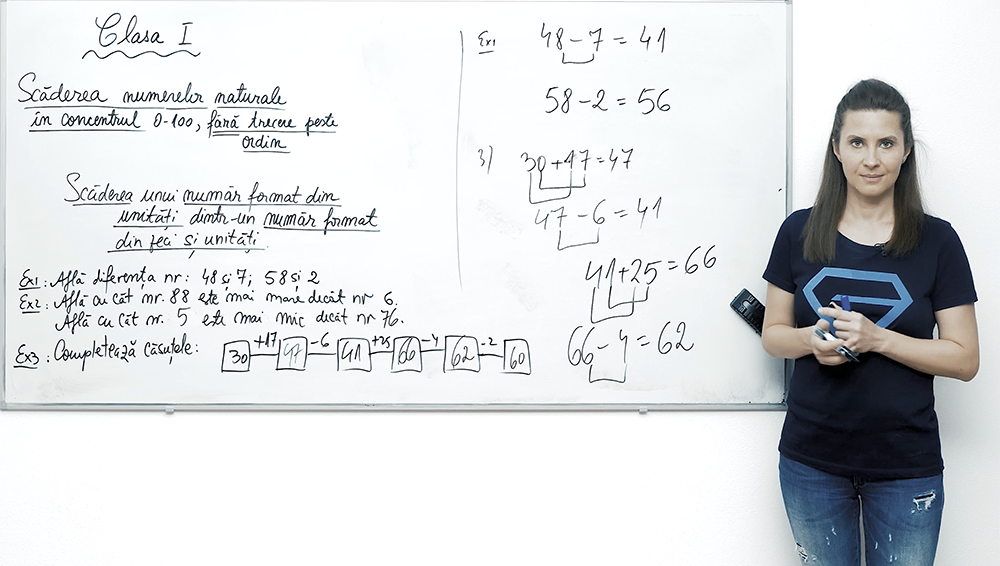 Clasa I
Scăderea numerelor naturale
în concentrul 0-100, fără trecere peste
ordin
Scăderea unui număr format din
unități dintr-un număr format
din zeci și unități.
Ex1: Află diferența nr: 48 și 7; 58 și 2
Ex2: Află cu cât nr. 88 este mai mare decât nr 6.
Află cu cât nr. 5 este mai mic decât nr 76.
Ex3: Completează căsuțele: 30 +17 47 -6 41 +25 66 -4 62 -2 60
Ex1 48-7=41
58-2=56
3) 30+17=47
47-6=41
41+25=66
66-4=62